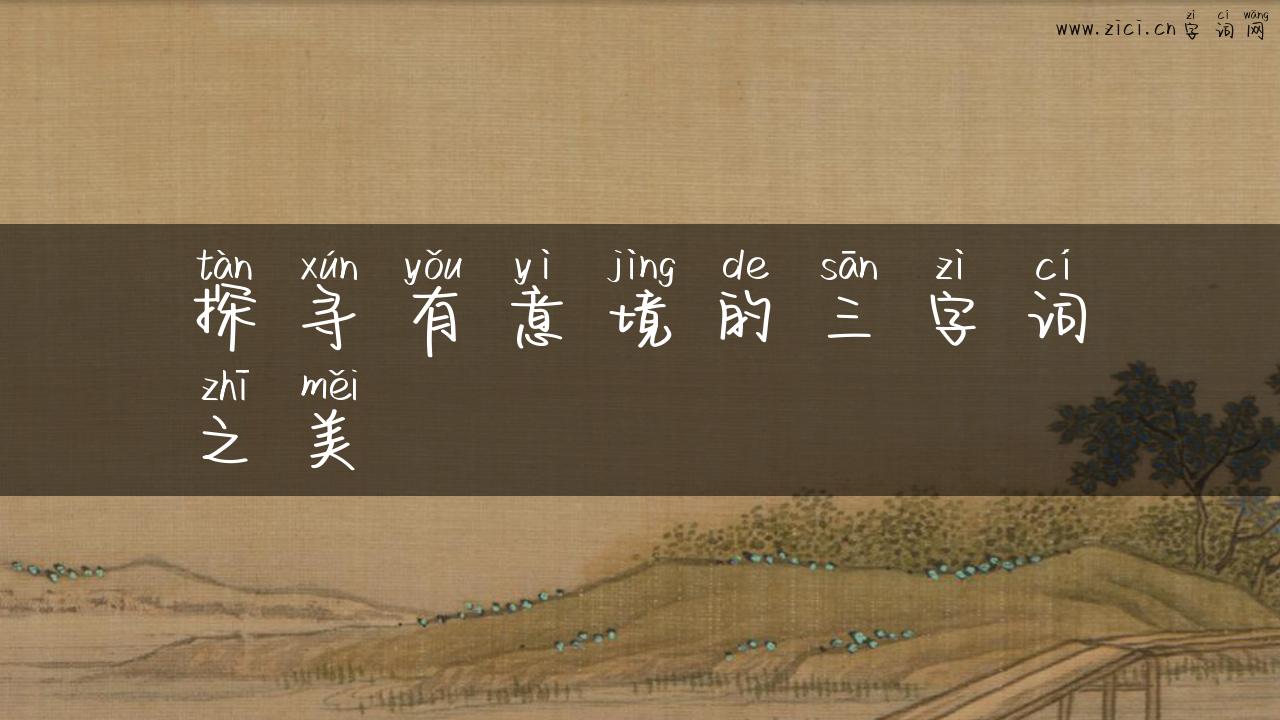 zì cí wǎng
www.zici.cn字词网
tàn xún yǒu yì jìng de sān zì cí
探寻有意境的三字词
zhī měi
之美